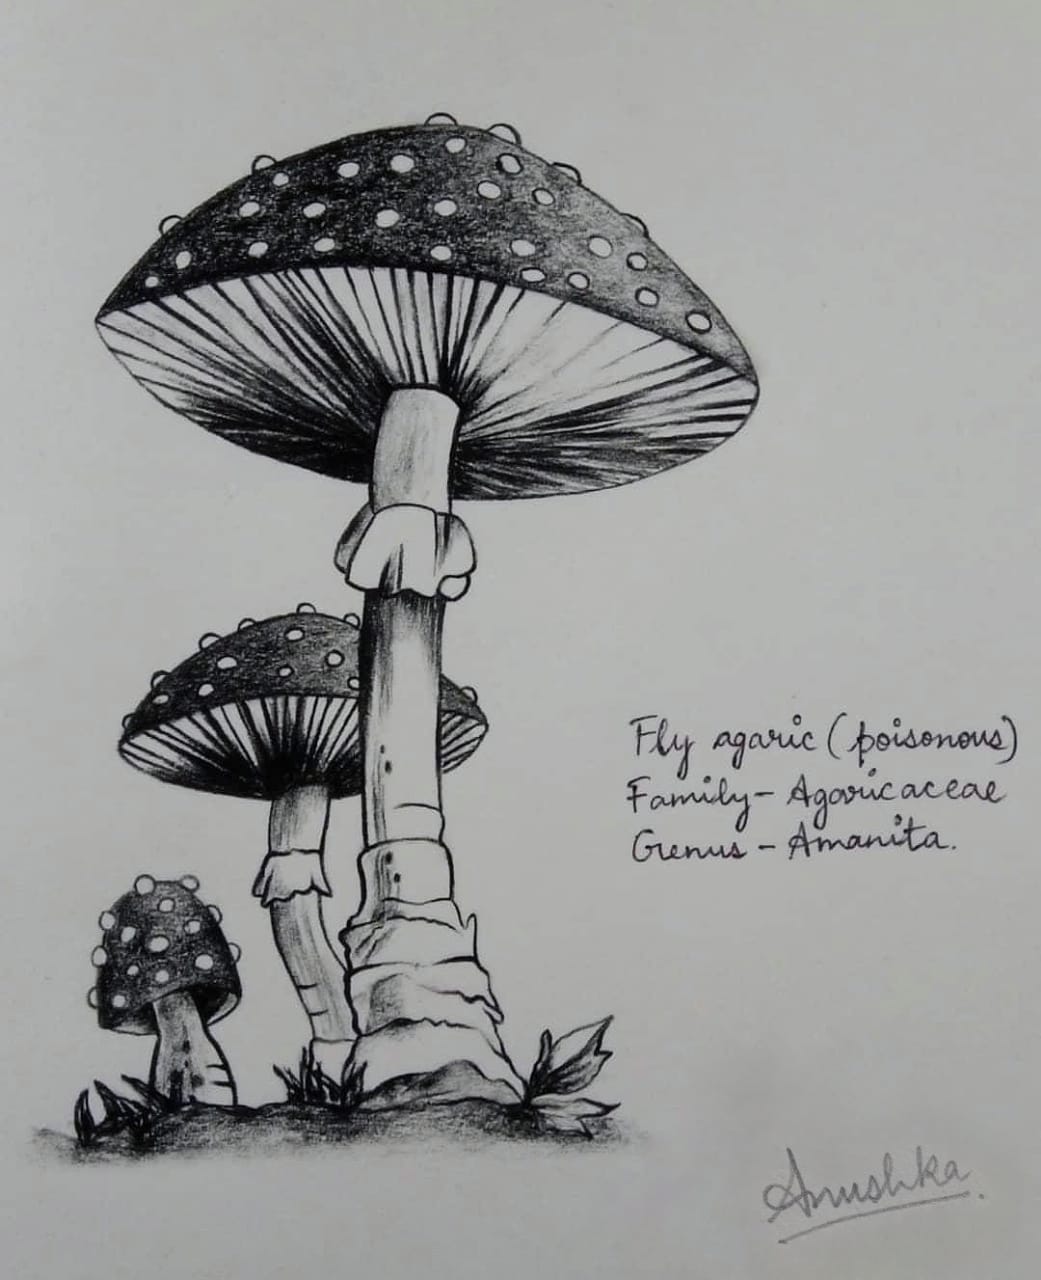 Fly agaric (poisonous)
Family - Agaricaceae
Genus - Amanita.
Anushka.